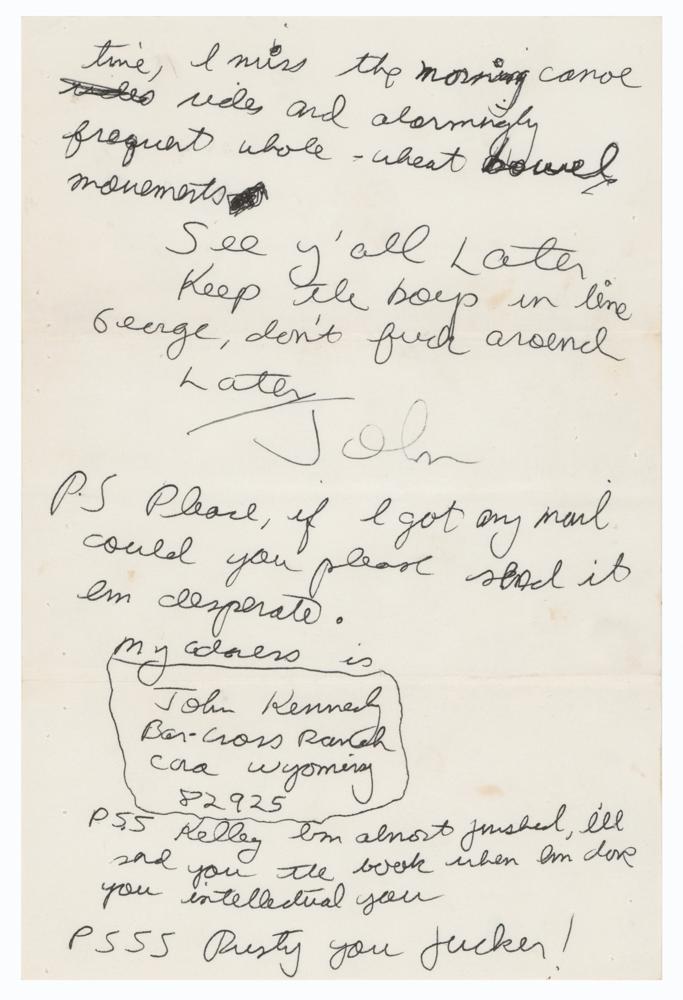 time, I miss the morning canoe
rides rides and alarmingly
frequent whole-wheat bowel
movements
See y'all Later
Keep the boys in line
George, don't fuck around
Later
John
P.S Please, if I got any mail
could you please send it
em desperate.
My adress is
John Kennedy
Bar-Cross Ranch
Cora Wyoming
82925
PSS Kelley Em almost finished, I'll
send you the book when Em done
you intellectual you
PSSS Rusty you fucker!